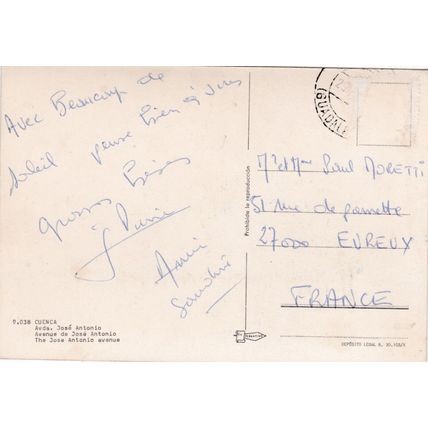 Avec Beaucoup de
soleil pense bien à vous
grosses Bises
Annie
Sandrine
9.038 CUENCA
Avda. José Antonio
Avenue de José Antonio
The Jose Antonio avenue
Prohibida la reproducción
(GUADALA
Mr et Mme Paul MORETTI
51 rue de pannette
27000 EVREUX
FRANCE
DEPÓSITO LEGAL B.